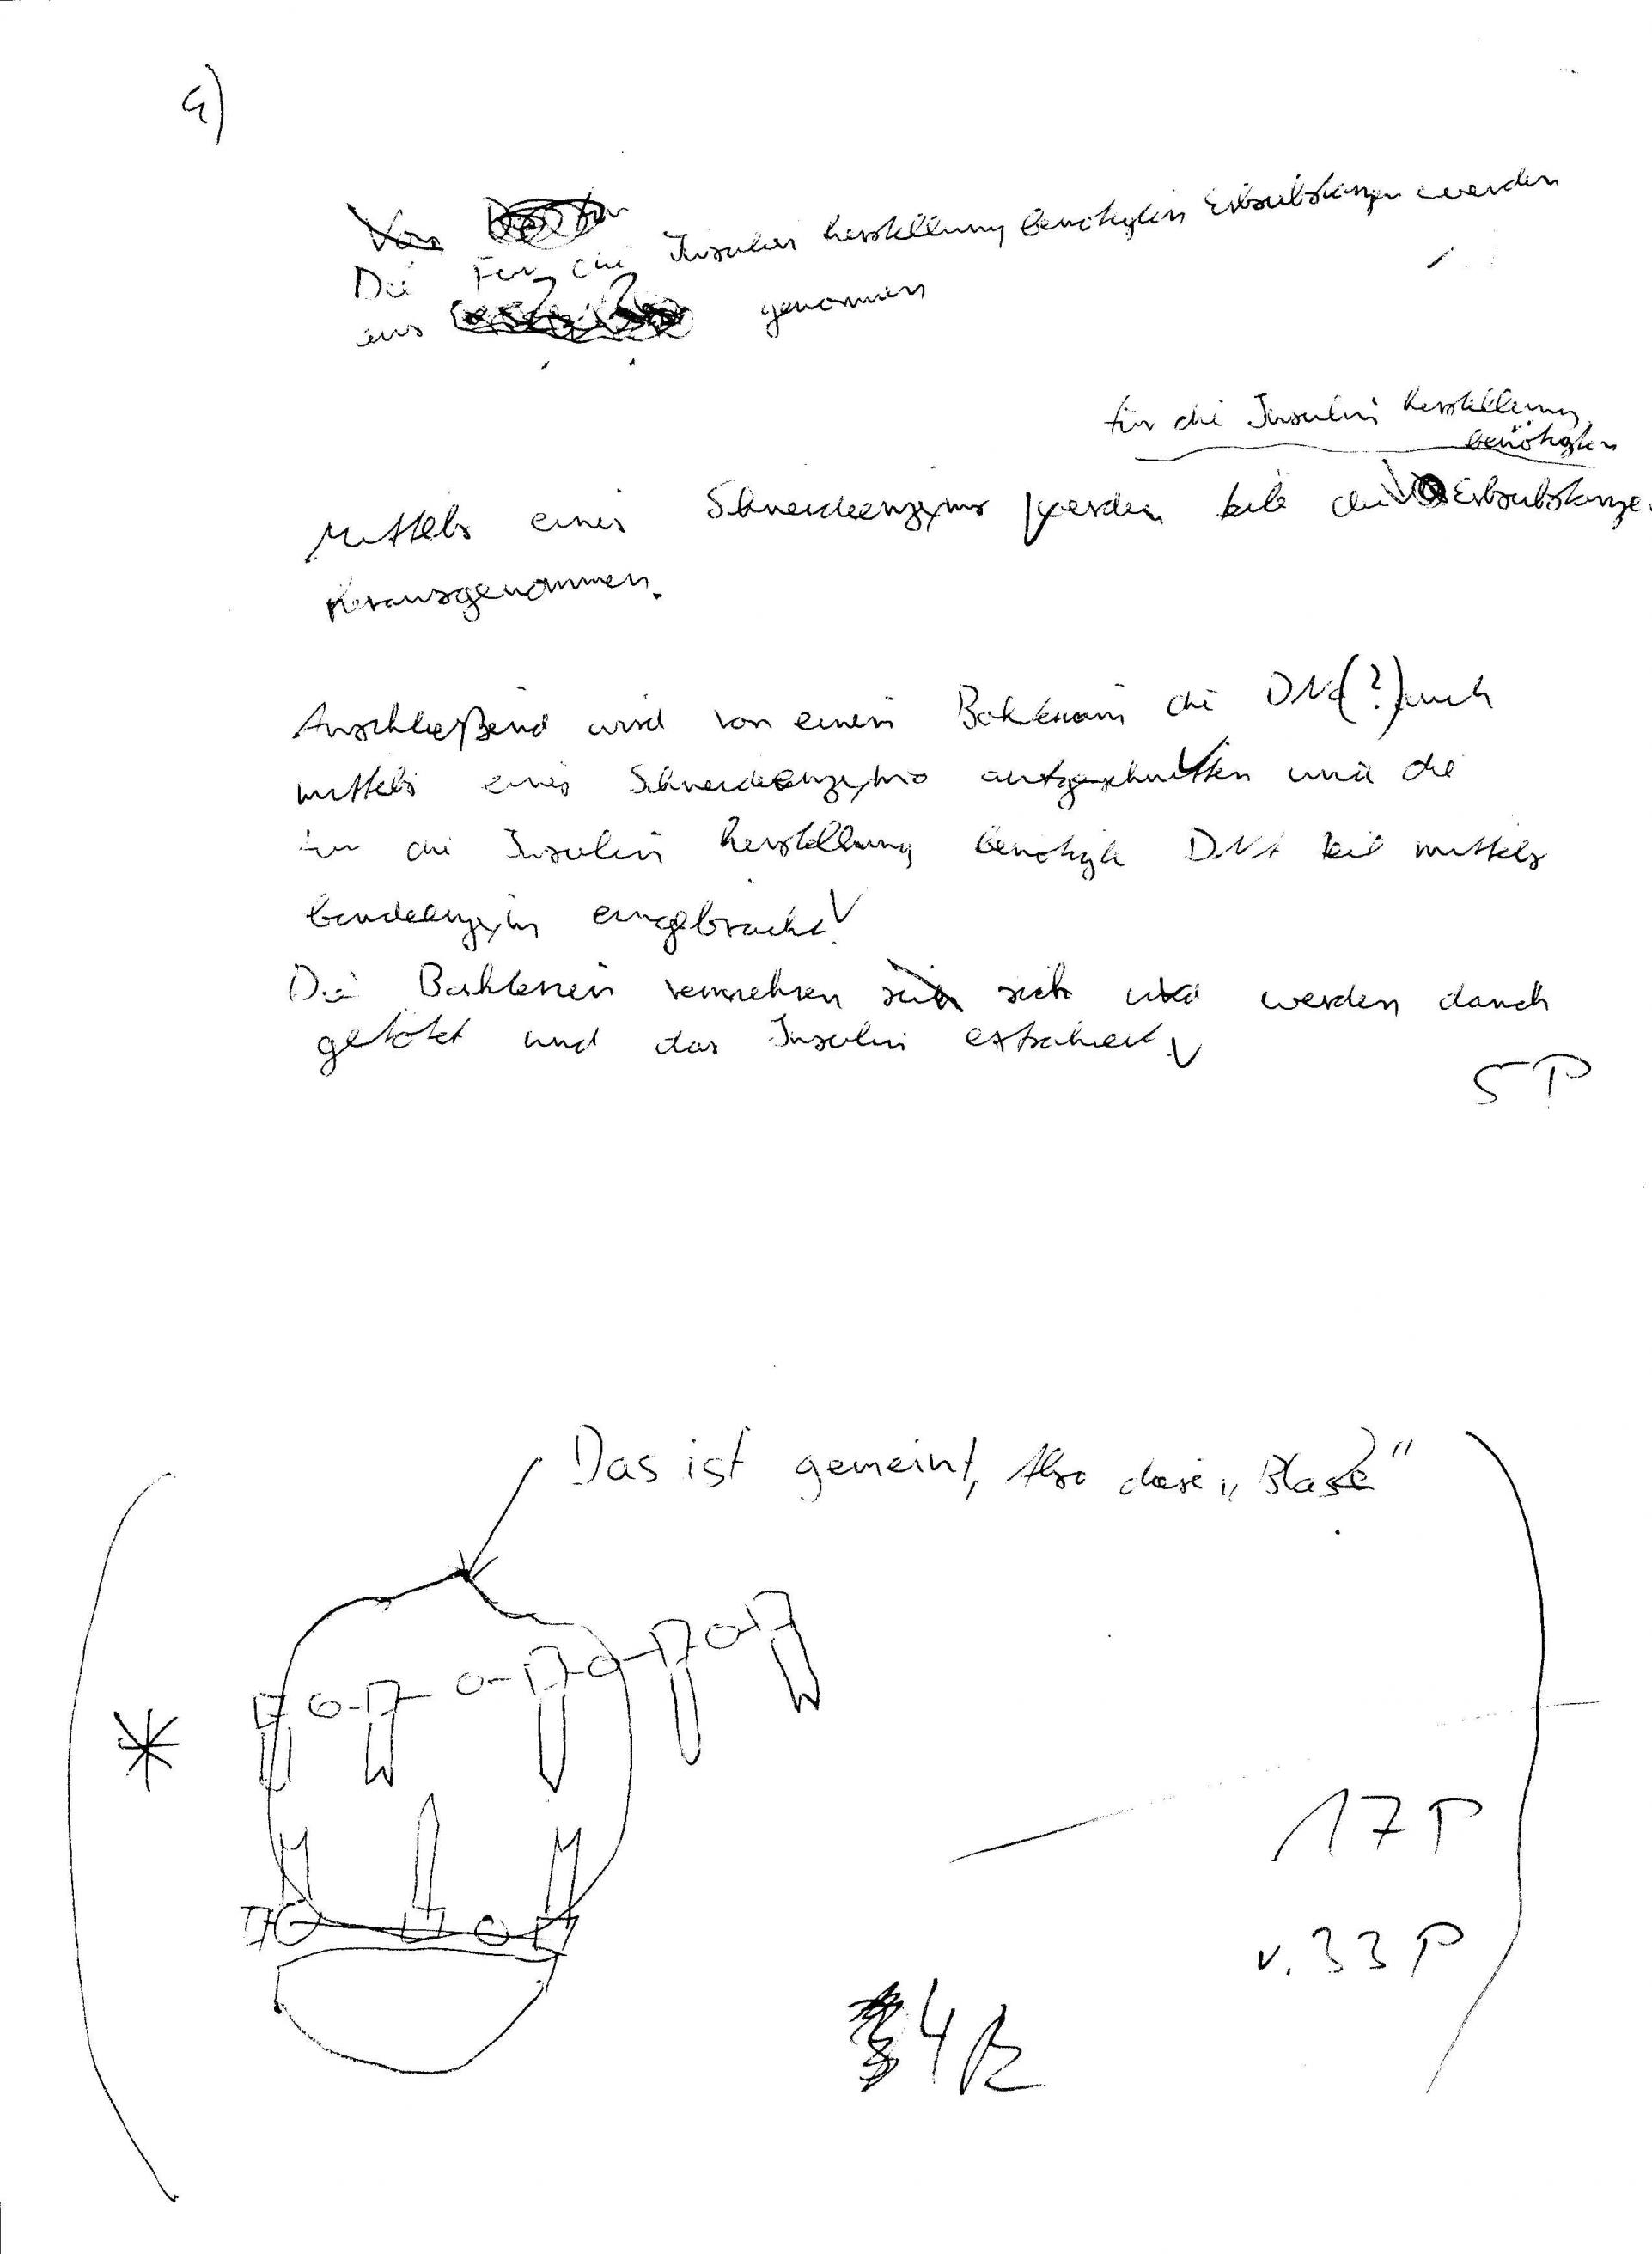 4)
Von
Die Für die Insulin herstellung benötigten Erbsubstanzen werden
aus genommen
für die Insulin herstellung
benötigten
Mittels eines Schneideenzyms werden teile der Erbsubstanze
herausgenommen.
Anschließend wird von einem Bakterium die DNA (?) auch
mittels eines Schneideenzyms aufgeschnitten und die
für die Insulin herstellung benötigte DNA teil mittels
bindeenzym eingebracht.
Die Bakterien vermehren sich und werden danach
getötet und das Insulin extrahiert.
5 P
Das ist gemeint, Also diese „Blase"
*
17 P
v. 33 P
4